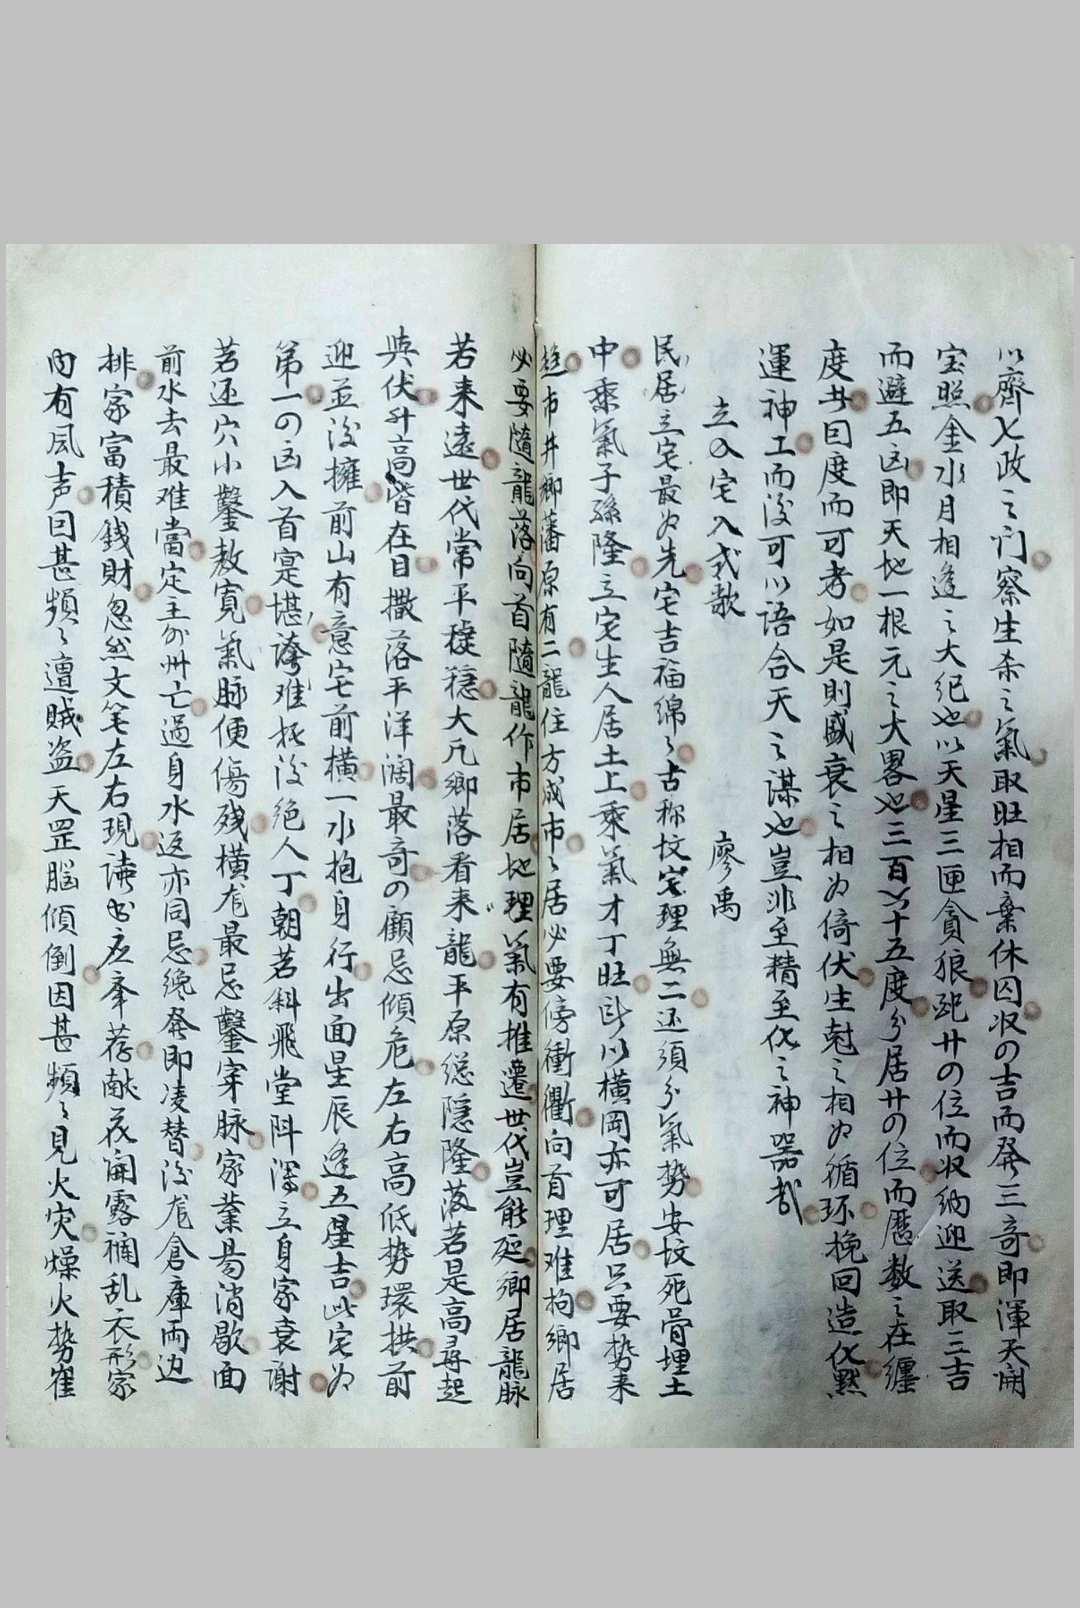 以齊七政之门察生杀之氣取旺相而棄休囚収の吉而発三奇即渾天開
宝照金水月相逢之大纪也以天星三匣貪狼跑廾の位而収納迎送取三吉
而避五凶即天地一根元之大畧也三百六十五度分居廾の位而歷数之在纒
度其因度而可考如是則盛衰之相为倚伏生尅之相为循环挽回造化黙
運神工而後可以语合天之謀也豈非至精至化之神器哉
立入宅入式歌 廖禹
民居立宅最为先宅吉福绵々古称坟宅理無二还須分氣勢安坟死骨埋土
中乘氣子孫隆立宅生人居土上乘氣才丁旺卧以橫岡亦可居只要勢来
市井鄉藩原有二龍住方成市々居必要傍衝衢向首理难拘鄉居
必要隨龍落向首隨龍作市居地理氣有推遷世代豈能延鄉居龍脉
若来遠世代常平穩大凡鄉落看来龍平原総隐隆落若是高尋起
與伏升高皆在目撒落平洋濶最奇の顧忌傾危左右高低势環拱前
迎並後擁前山有意宅前橫一水抱身行出面星辰逢五星吉此宅为
第一の凶入首寔堪誇难拯後绝人丁朝若斜飛堂斜深立身家衰谢
若还穴小鑿教寛氣脉便傷残橫龙最忌鑿穿脉家業易消歇面
前水去最难當定主外州亡過身水返亦同忌纔発即凌替後龙倉庫両边
排家富積錢財忽然文笔左右現读书应牵荐献花開露裲乱衣形家
內有風声回甚頻々遭賊盗天罡腦傾倒因甚頻々見火灾燥火势崔